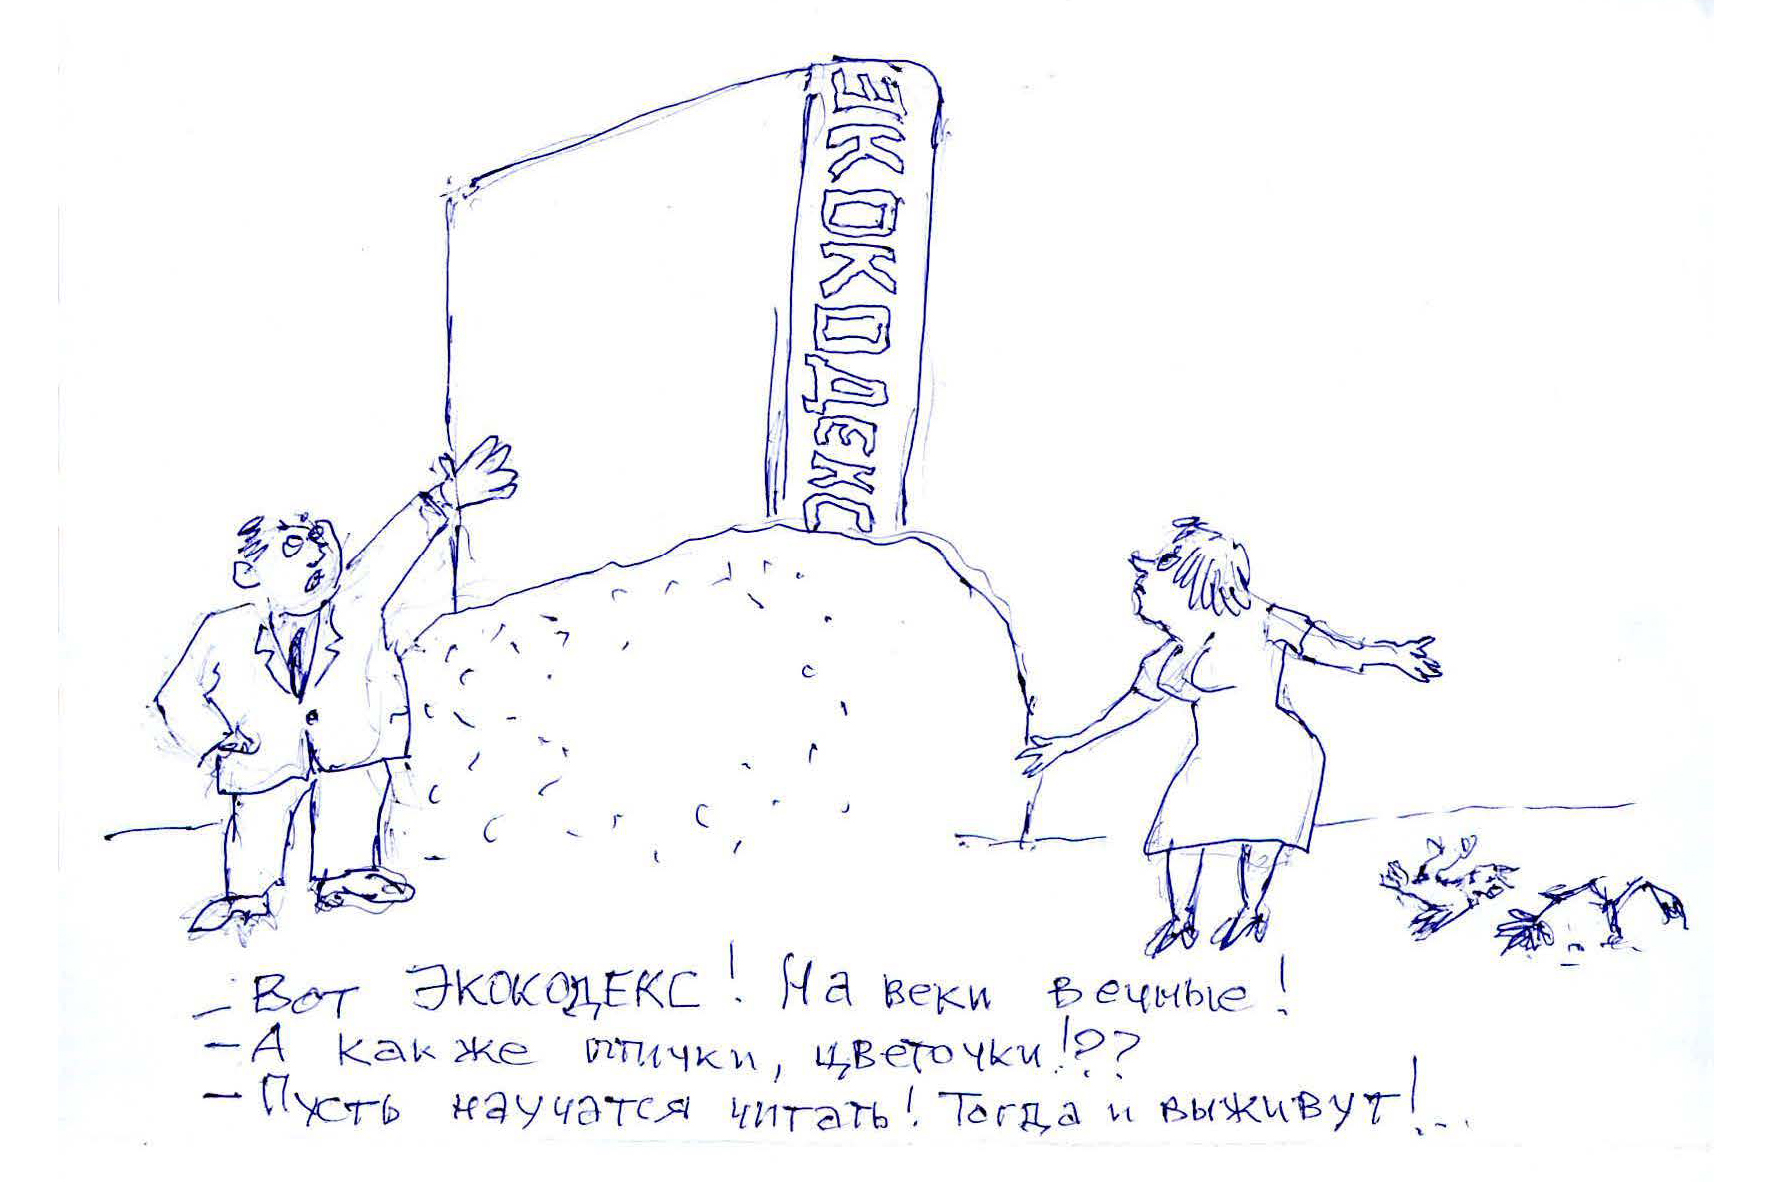 ЭКОКОДЕКС
– Вот ЭКОКОДЕКС! На веки вечные!
– А как же птички, цветочки!??
– Пусть научатся читать! Тогда и выживут!...